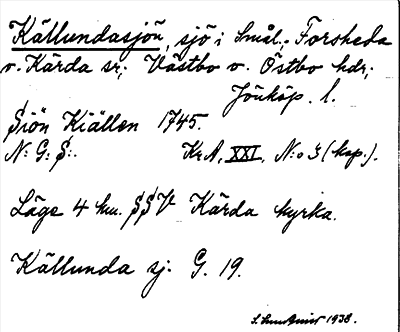 Källundasjön, sjö i Smål.; Forsheda
o. Kärda sr; Västbo o. Östbo hdr;
Jönköp. l.
Siön Kiällen 1745.
N: G: S:. Kr A, XXI, N:o 3 (kop.).
Läge 4 km. SSV Kärda kyrka.
Källunda sj. G. 19.
1938.